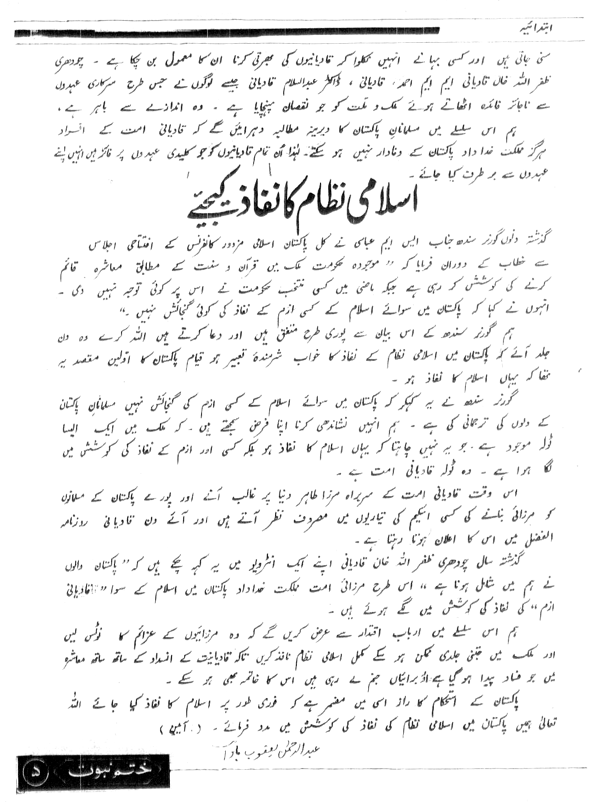 ابتدائیہ
سنی جاتی ہیں اور کسی بہانے انہیں نکلوا کر قادیانیوں کی بھرتی کرنا ان کا معمول بن چکا ہے ۔ چودھری
ظفر اللہ خاں قادیانی ایم ایم احمد، قادیانی ، ڈاکٹر عبدالسلام قادیانی جیسے لوگوں نے جس طرح سرکاری عہدوں
سے ناجائز فائدہ اٹھاتے ہوئے ملک و ملت کو جو نقصان پہنچایا ہے ۔ وہ اندازے سے باہر ہے ،
ہم اس سلسلے میں مسلمانانِ پاکستان کا دیرینہ مطالبہ دہرائیں گے کہ قادیانی امت کے افراد
ہرگز مملکت خداداد پاکستان کے وفادار نہیں ہو سکتے۔ لہٰذا ان تمام قادیانیوں کو جو کلیدی عہدوں پر فائز ہیں انہیں اپنے
عہدوں سے بر طرف کیا جائے ۔
اسلامی نظام کا نفاذ کیجئے
گذشتہ دنوں گورنر سندھ جناب ایس ایم عباسی نے کل پاکستان اسلامی مزدور کانفرنس کے افتتاحی اجلاس
سے خطاب کے دوران فرمایا کہ " موجودہ حکومت ملک میں قرآن و سنت کے مطابق معاشرہ قائم
کرنے کی کوشش کر رہی ہے جبکہ ماضی میں کسی منتخب حکومت نے اس پر کوئی توجہ نہیں دی ۔
انہوں نے کہا کہ پاکستان میں سوائے اسلام کے کسی ازم کے نفاذ کی کوئی گنجائش نہیں ۔"
ہم گورنر سندھ کے اس بیان سے پوری طرح متفق ہیں اور دعا کرتے ہیں اللہ کرے وہ دن
جلد آئے کہ پاکستان میں اسلامی نظام کے نفاذ کا خواب شرمندۂ تعبیر ہو قیام پاکستان کا اولین مقصد یہ
تھا کہ یہاں اسلام کا نفاذ ہو ۔
گورنر سندھ نے یہ کہہ کر کہ پاکستان میں سوائے اسلام کے کسی ازم کی گنجائش نہیں مسلمانانِ پاکستان
کے دلوں کی ترجمانی کی ہے ۔ ہم انہیں نشاندھی کرنا اپنا فرض سمجھتے ہیں ۔ کہ ملک میں ایک ایسا
ٹولہ موجود ہے ۔ جو یہ نہیں چاہتا کہ یہاں اسلام کا نفاذ ہو بلکہ کسی اور ازم کے نفاذ کی کوشش میں
لگا ہوا ہے ۔ وہ ٹولہ قادیانی امت ہے ۔
اس وقت قادیانی امت کے سربراہ مرزا طاہر دنیا پر غالب آنے اور پورے پاکستان کے مسلمانوں
کو مرزائی بنانے کی کسی اسکیم کی تیاریوں میں مصروف نظر آتے ہیں اور آئے دن قادیانی روزنامہ
الفضل میں اس کا اعلان ہوتا رہتا ہے ۔
گذشتہ سال چودھری ظفر اللہ خان قادیانی اپنے ایک انٹرویو میں یہ کہہ چکے ہیں کہ " پاکستان والوں
نے ہم میں شامل ہونا ہے " اس طرح مرزائی امت مملکت خداداد پاکستان میں اسلام کے سوا " قادیانی
ازم " کی نفاذ کی کوشش میں لگے ہوئے ہیں ۔
ہم اس سلسلے میں ارباب اقتدار سے عرض کریں گے کہ وہ مرزائیوں کے عزائم کا نوٹس لیں
اور ملک میں جتنی جلدی ممکن ہو سکے مکمل اسلامی نظام نافذ کریں تاکہ قادیانیت کے انسداد کے ساتھ ساتھ معاشرہ
میں جو فساد پیدا ہو گیا ہے اور برائیاں جنم لے رہی ہیں اس کا خاتمہ بھی ہو سکے ۔
پاکستان کے استحکام کا راز اسی میں مضمر ہے کہ فوری طور پر اسلام کا نفاذ کیا جائے اللہ
تعالیٰ ہمیں پاکستان میں اسلامی نظام کی نفاذ کی کوشش میں مدد فرمائے ۔ ( آمین )
عبدالرحمٰن یعقوب باوا
ختم نبوت ۵